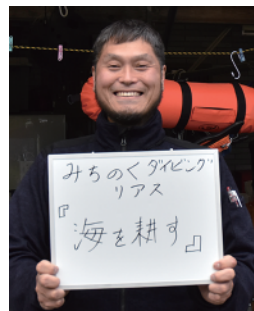 みちのくダイビング
リアス
『海を耕す』